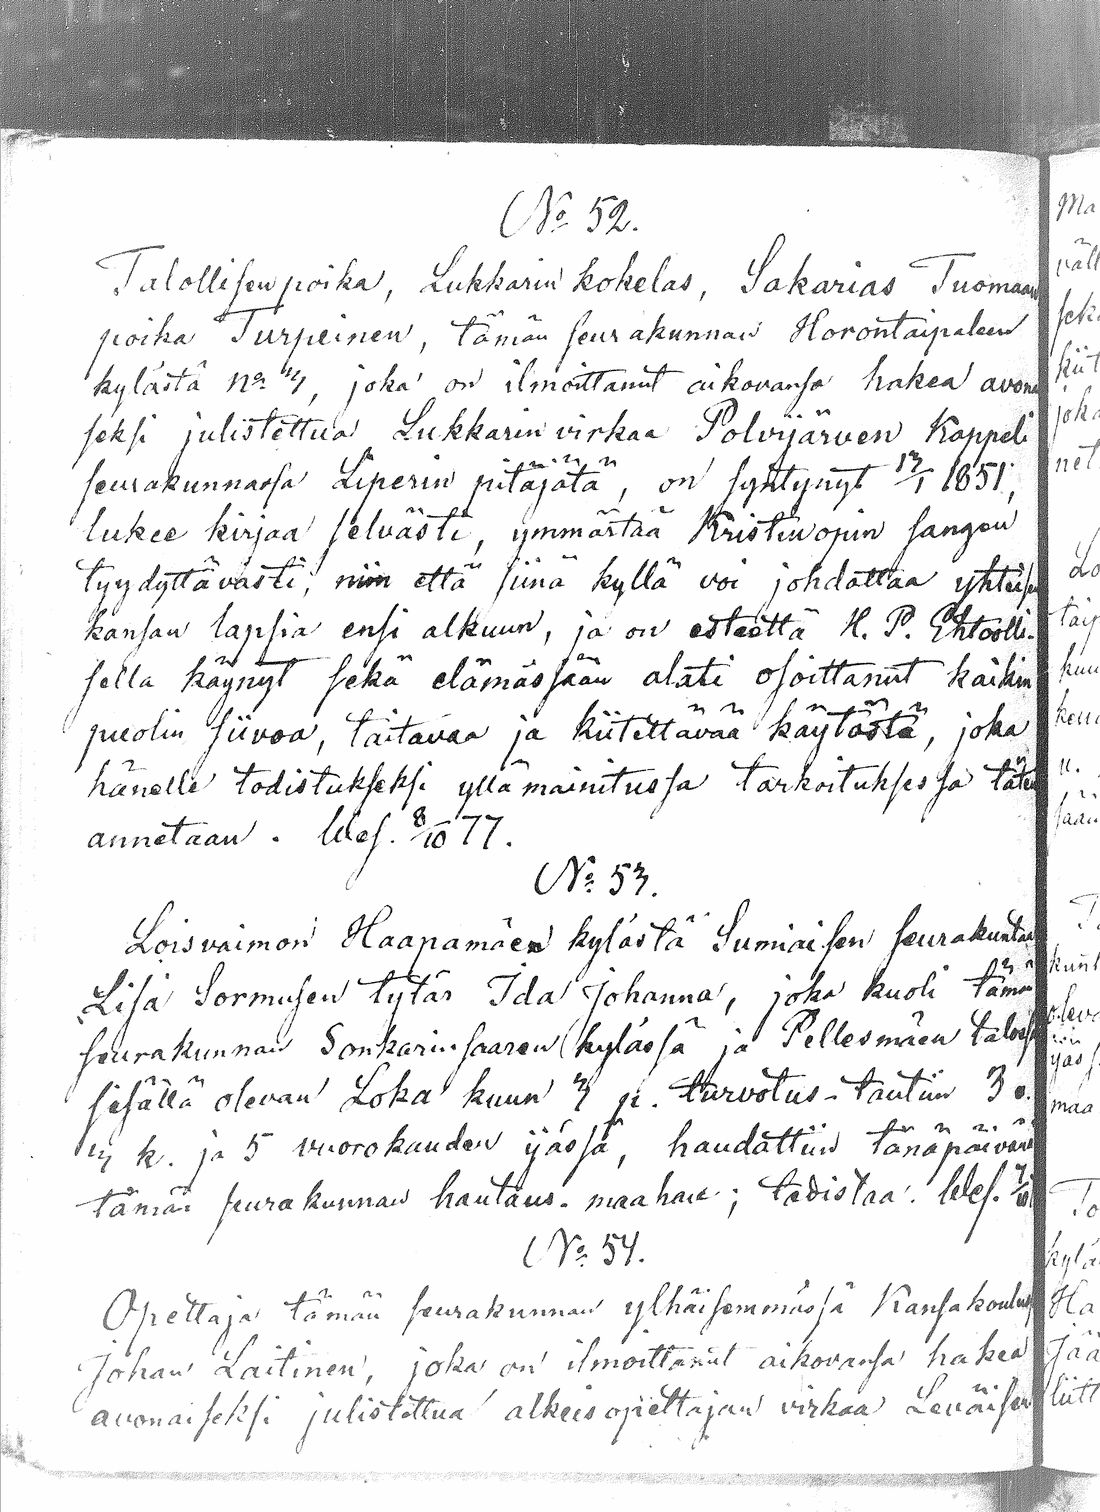 No 52.
Talollisen poika, Lukkarin kokelas, Sakarias Tuomaan
poika Turpeinen, tämän seurakunnan Horontaipaleen
kylästä no 4, joka on ilmoittanut aikovansa hakea avona
seksi julistettua Lukkarin virkaa Polvijärven Kappeli
seurakunnassa Liperin pitäjätä, on syntynyt 13/1 1851,
lukee kirjaa selvästi, ymmärtää Kristinopin sangen
tyydyttävästi, niin että siinä kyllä voi johdattaa yhteisen
kansan lapsia ensi alkuun, ja on esteettä H. P. Ehtoolli-
sella käynyt sekä elämässään alati osoittanut kaikin
puolin siivoa, taitavaa ja kiitettävää käytöstä, joka
hänelle todistukseksi yllämainitussa tarkoituksessa täten
annetaan. Wes. 8/10 77.
No 53.
Loisvaimon Haapamäen kylästä Sumiaisen seurakuntaa
Lisa Sormusen tytär Ida Johanna, joka kuoli tämän
seurakunnan Sonkarinsaaren kylässä ja Pellesmäen talossa
sisällä olevan Loka kuun 3 p. turvotus-tautiin 3 v.
4 k. ja 5 vuorokauden ijässä, haudattiin tänäpäivänä
tämän seurakunnan hautaus-maahan; todistaa. Wes. 7/10
No 54.
Opettaja tämän seurakunnan ylhäisemmässä Kansakoulussa
Johan Laitinen, joka on ilmoittanut aikovansa hakea
avonaiseksi julistettua alkeisopettajan virkaa Leväisen